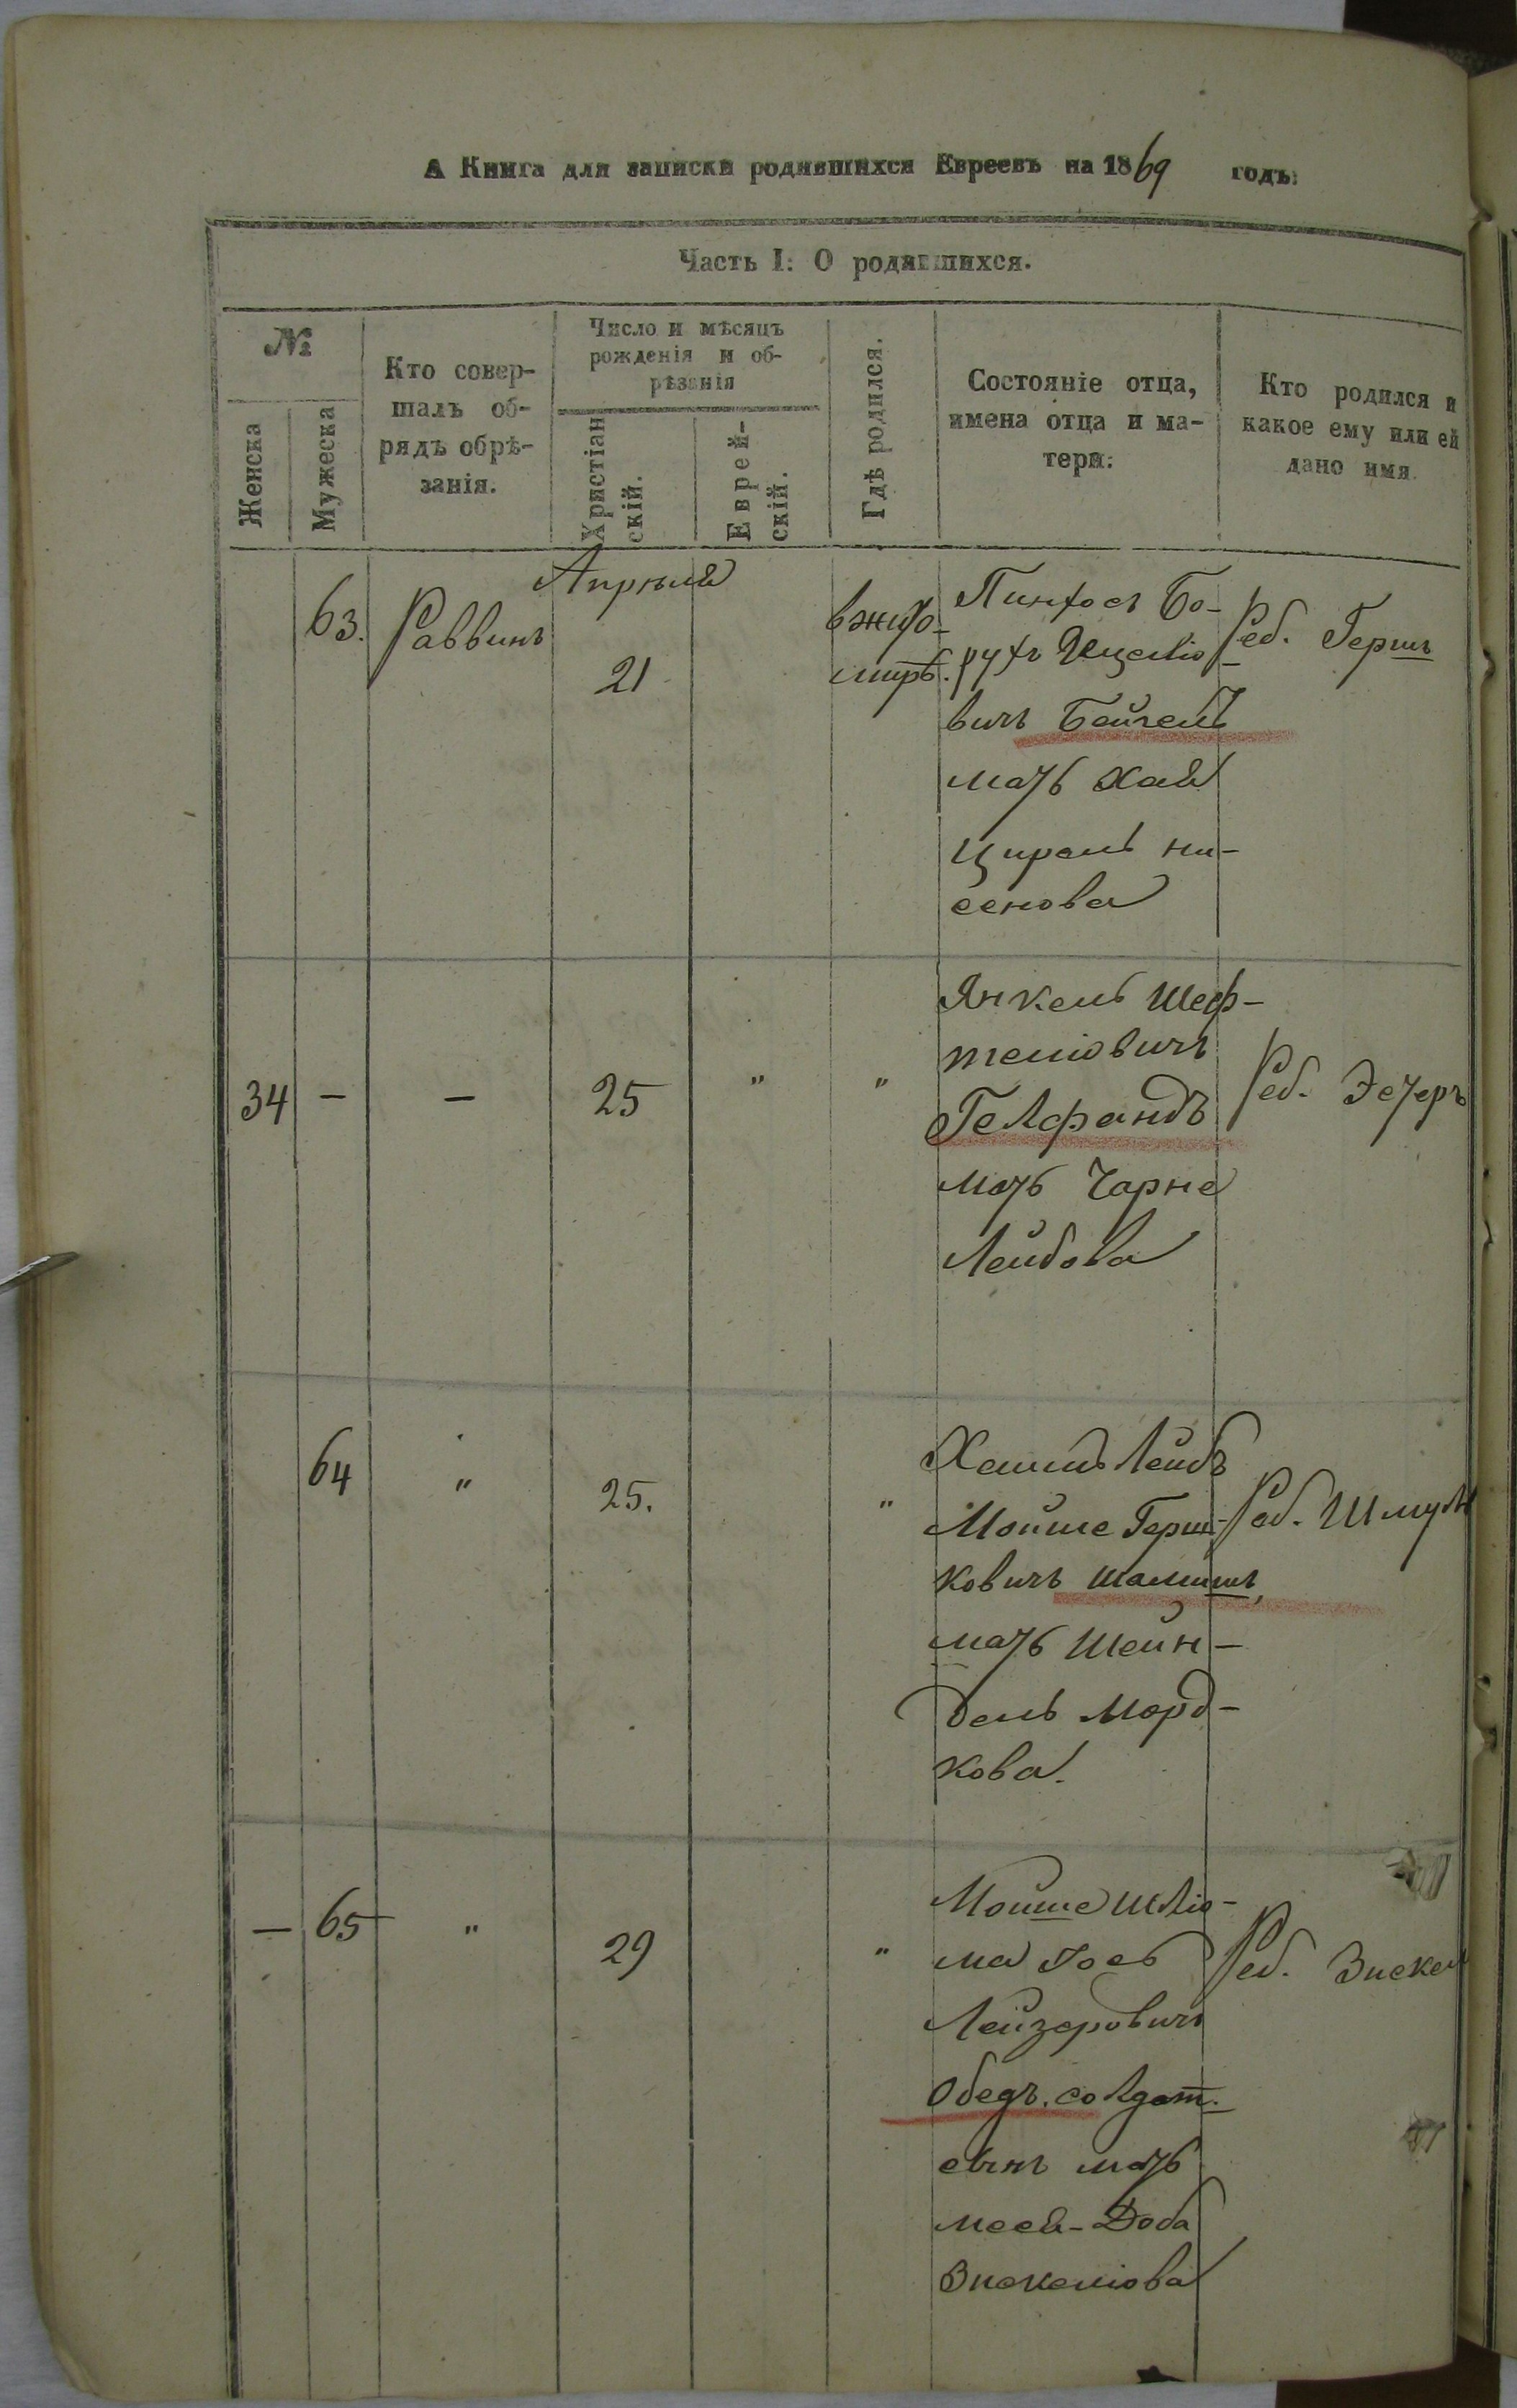 А Книга для записки родившихся Евреевъ на 1869 годъ:
Часть I: О родившихся.
№
Женска
Мужеска
Кто совер-
шалъ об-
рядъ обрѣ-
занія.
Число и мѣсяцъ
рожденія и об-
рѣзанія
Христіан
скій.
Еврей-
скій.
Гдѣ родился.
Состояніе отца,
имена отца и ма-
тери:
Кто родился и
какое ему или ей
дано имя.
Апрѣля
63. Раввинъ 21 вжито-
мирѣ.
Пинхос Бо-
рухъ Ицелio-
вичъ Бейгель
мать Хая
Цирель Ни-
сенова
Реб. Гершъ
34 – – 25 " "
Янкель Шеф-
теліовичъ
Гелфандъ
мать Чарне
Лейбова
Реб. Эстеръ
64 " 25. "
Хаимъ Лейбъ
Мойше Герш-
ковичъ
мать Шейн-
дель Морд-
кова.
Реб. Шмуль
– 65 " 29 "
Мойше Шлio-
ма Іось
Лейзеровичъ
Обедъ. солдат.
сынъ мать
Доба
Зискеліова
Реб. Зискел